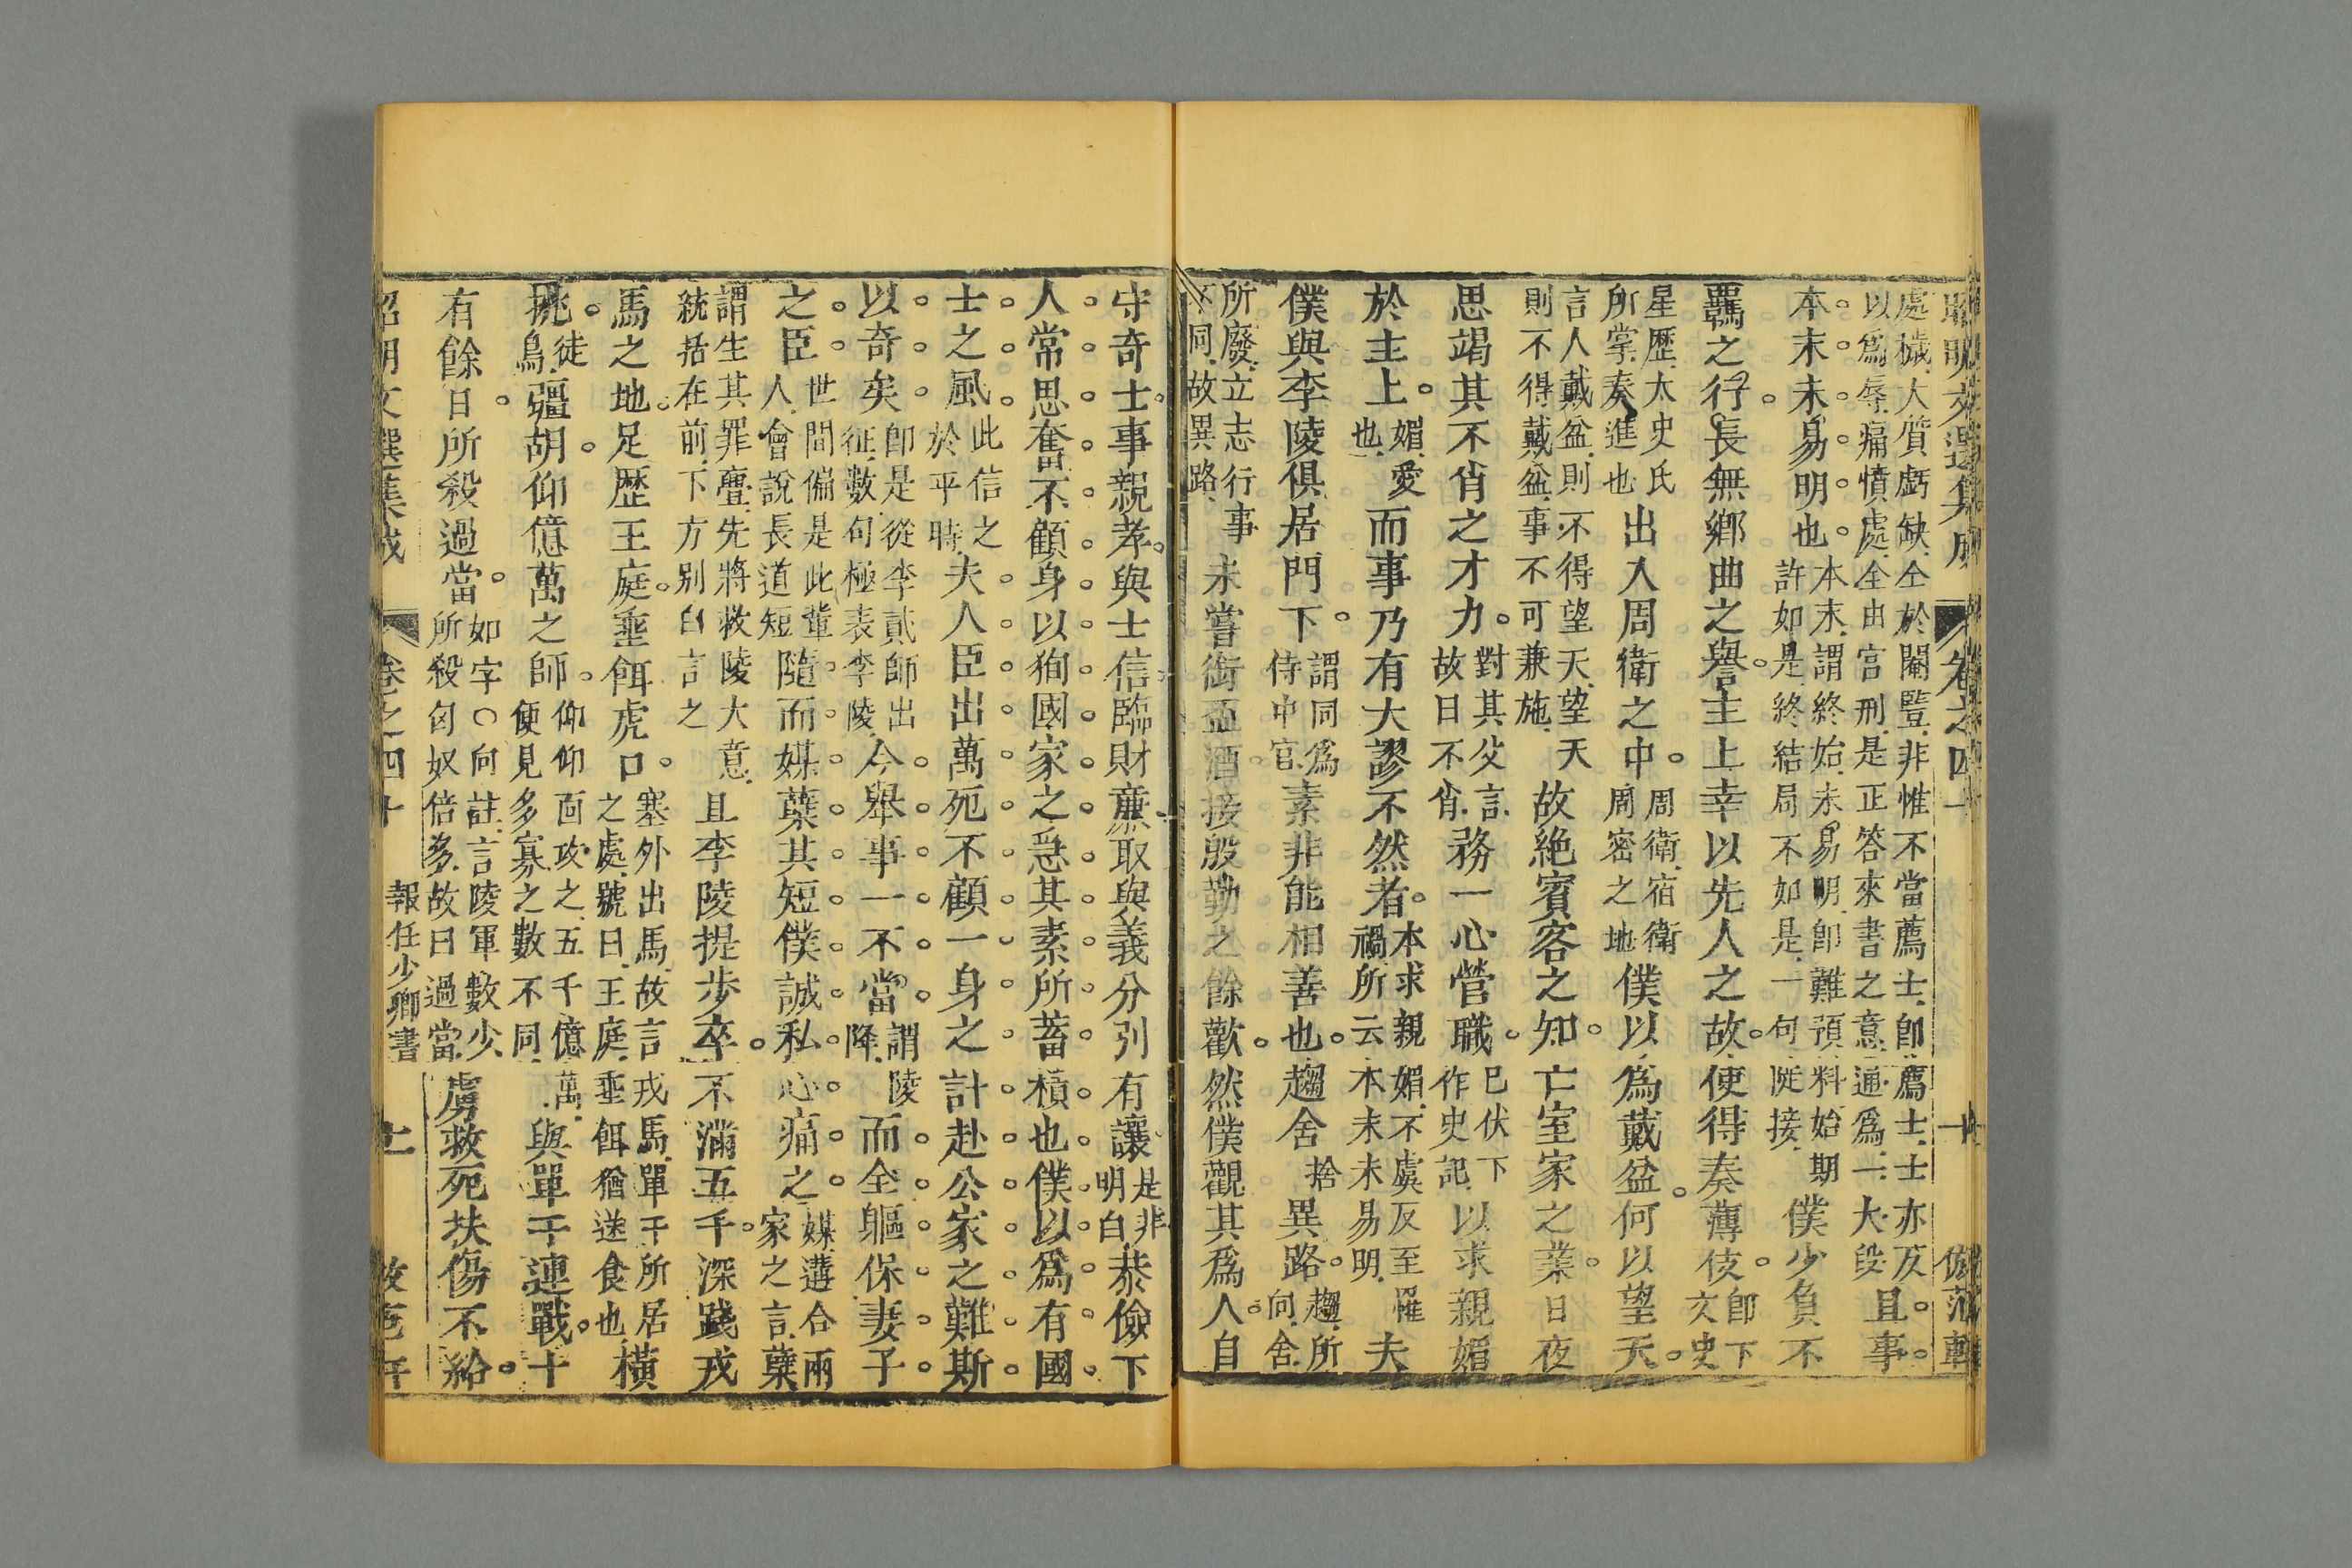 昭明文選集成 卷之四十 十 倣范軒
處穢大質虧缺仝於閹豎非惟不當薦士卽薦士士亦反
以爲辱痛憤處仝由宮刑是正答來書之意通爲一大段且事
本末未易明也
本末謂終始未易明卽難預料始期
許如是終結局不如是一句陡接
僕少負不
羈之行長無鄉曲之譽主上幸以先人之故使得奏薄伎
卽下
文史
星歷太史氏
所掌奏進也
出入周衛之中
周衛宿衛
周密之地
僕以爲戴盆何以望天
言人戴盆則不得望天望天
則不得戴盆事不可兼施
故絶賓客之知亡室家之業日夜
思竭其不肖之才力
對其父言
故曰不肖
務一心營職
巳伏下
作史記
以求親媚
於主上
媚愛
也
而事乃有大謬不然者
本求親媚不虞反至罹
禍所云本末未易明
夫
僕與李陵俱居門下
謂同爲
侍中官
素非能相善也趨舍
捨
異路
趨所
向舍
所廢立志行事
不同故異路
未嘗銜盃酒接殷勤之餘歡然僕觀其爲人自
守奇士事親孝與士信臨財亷取與義分別有讓
是非
明白
恭儉下
人常思奮不顧身以狥國家之急其素所蓄積也僕以爲有國
士之風
此信之
於平時
夫人臣出萬死不顧一身之計赴公家之難斯
以奇矣
卽是從李貳師出
征數句極表李陵
今舉事一不當
謂陵
降
而全軀保妻子
之臣
世間偏是此輩
人會說長道短
隨而媒蘖其短僕誠私心痛之
媒遘合兩
家之言蘖
謂生其罪舋先將救陵大意
統括在前下方别白言之
且李陵提步卒不滿五千深踐戎
馬之地足歷王庭垂餌虎口
塞外出馬故言戎馬單于所居
之處號曰王庭垂餌猶送食也
橫
挑
徒
鳥
彊胡仰億萬之師
仰仰面攻之五千億萬
便見多寡之數不同
與單于連戰十
有餘日所殺過當
如字○向註言陵軍數少
所殺匈奴倍多故曰過當
虜救死扶傷不給
昭明文選集成 卷之四十 報任少卿書 十一